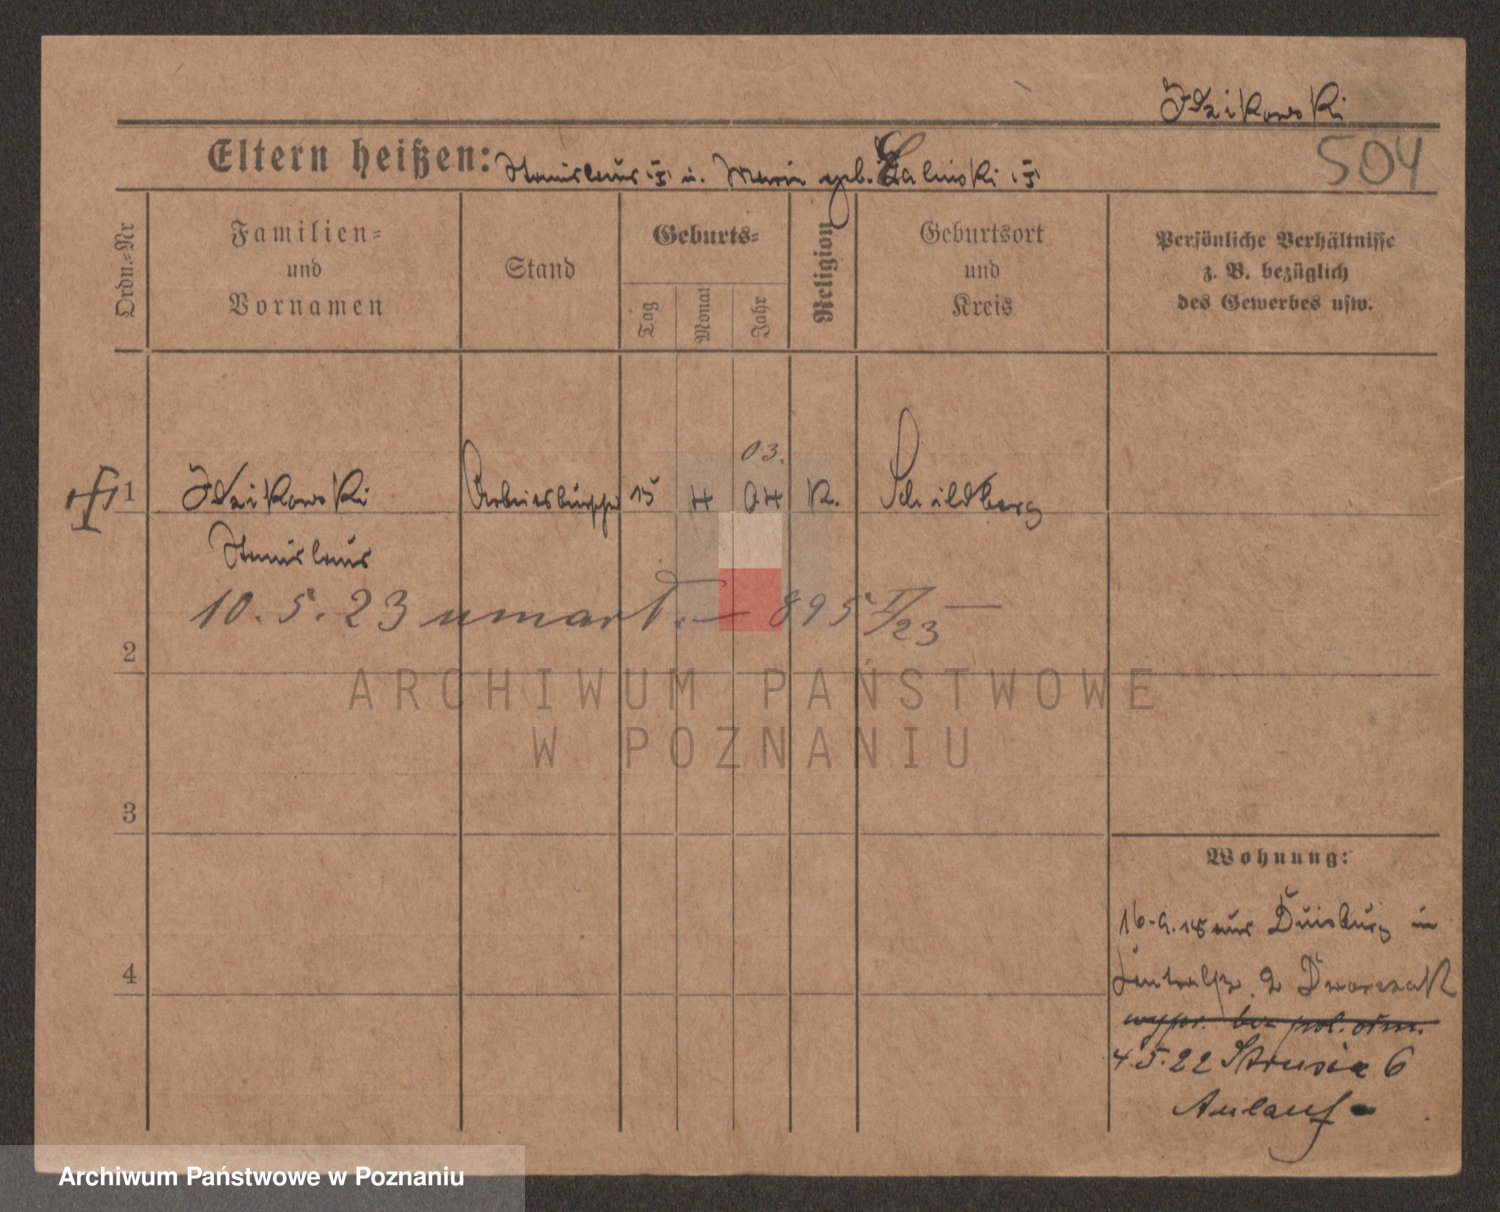 Idzikowski
504
Eltern heißen: Stanislaus † u. Maria geb. Zalinski †
Ordn.-Nr
Familien-
und
Vornamen
Stand
Geburts-
Tag
Monat
Jahr
Religion
Geburtsort
und
Kreis
Persönliche Verhältnisse
z. B. bezüglich
des Gewerbes usw.
03.
1 Idzikowski Arbeitsbursche 15 4 04 K. Schildberg
Stanislaus
10.5.23 umarł. — 895 I/23 —
2
ARCHIWUM PAŃSTWOWE
W POZNANIU
3
Wohnung:
16.9.18 aus Duisburg in
2 Dworczak
wypr. bez pol. ozn.
4.5.22 Strusia 6
Anlauf
4
Archiwum Państwowe w Poznaniu